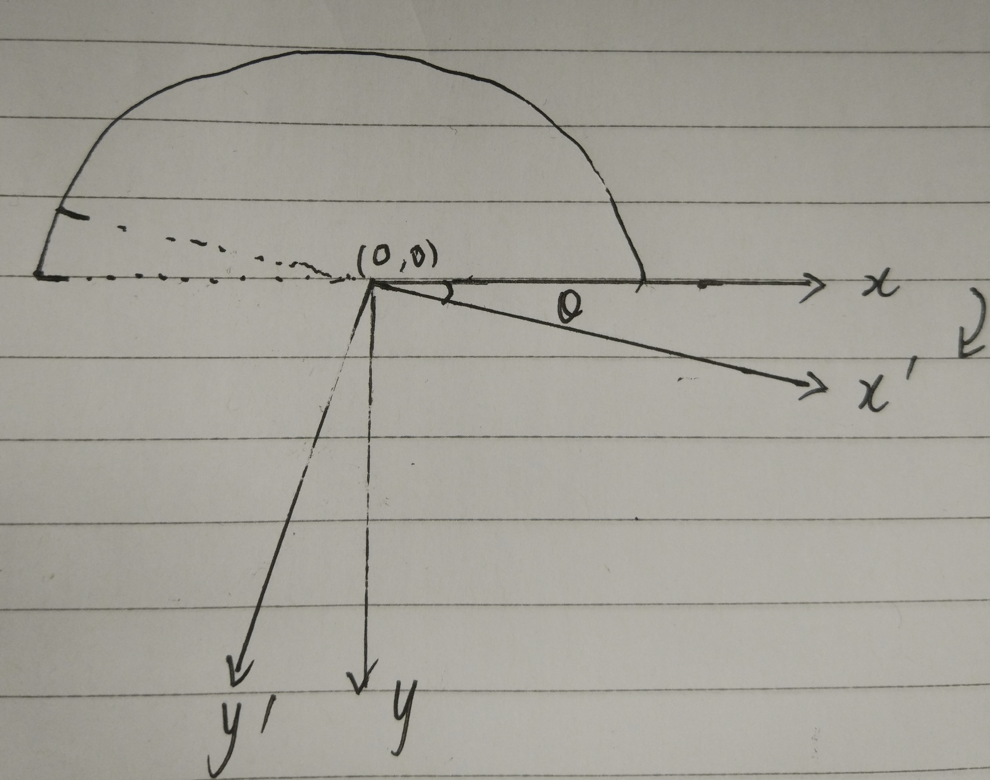 (0,0)
x
θ
x'
y'
y